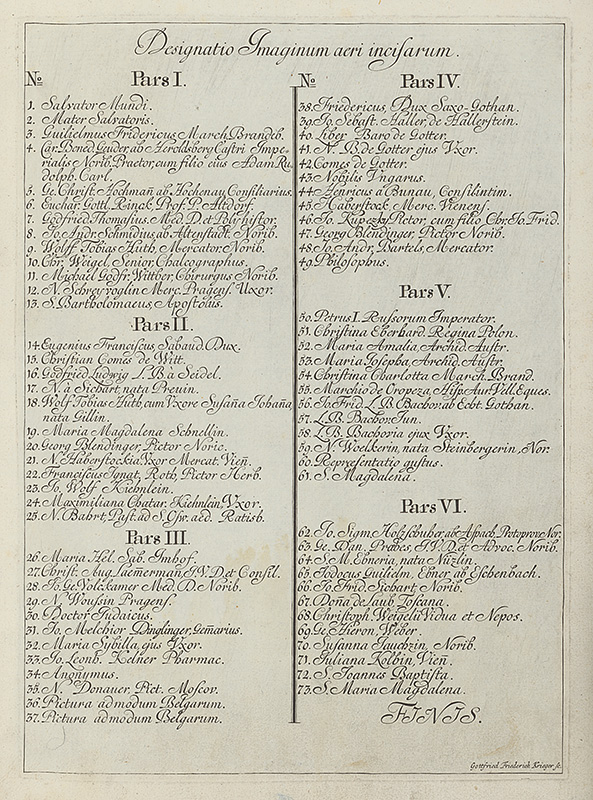 Designatio Imaginum aeri incisarum.
No Pars I.
1. Salvator Mundi.
2. Mater Salvatoris.
3. Guilielmus Fridericus, March. Brandeb.
4. Car. Bened. Geuder, ab Heroldsberg Castri Impe-
rialis Norib. Praetor, cum filio eius Adam Ru
dolph. Carl.
5. Ge. Christ. Hochmañ ab Hochenau, Consiliarius.
6. Euchar. Gottl. Rinck, Prof. P. Altdorf.
7. Godfried Thomasius, Med. D. et Polyhistor.
8. Jo. Andr. Schmidius ab Altenstadt. Norib.
9. Wolff Tobias Huth, Mercator, Norib.
10. Chr. Weigel, Senior, Chalcographus.
11. Michael Godfr. Wittber, Chirurgus Norib.
12. N. Schreyvoglin Merc. Pragens. Uxor.
13. S. Bartholomaeus, Apostolus.
Pars II.
14. Eugenius Franciscus, Sabaud. Dux.
15. Christian Comes de Witt.
16. Godfried Ludwig L. B. à Seidel.
17. N. à Sichart, nata Preuin.
18. Wolf Tobias Huth, cum Vxore Susaña Johaña,
nata Gillin.
19. Maria Magdalena Schnellin.
20. Georg Blendinger, Pictor Noric.
21. N. Haberstockia, Vxor Mercat. Vieñ.
22. Franciscus Ignat. Roth, Pictor Herb.
23. Jo. Wolf Kiehnlein.
24. Maximiliana Chatar. Kiehnlein, Vxor.
25. N. Bahrt, Past. ad S. Osw. aed. Ratisb.
Pars III.
26. Maria Hel. Sab. Imhof.
27. Christ. Aug. Laemerman, I. V. D. et Consil.
28. Jo. Ge. Volckamer Med. D. Norib.
29. N. Woussin Pragens.
30. Doctor Iudaicus.
31. Jo. Melchior Dinglinger, Gemarius.
32. Maria Sybilla, ejus Vxor.
33. Jo. Leonh. Kelner Pharmac.
34. Anonymus.
35. N. Donauer, Pict. Moscov.
36. Pictura ad modum Belgarum.
37. Pictura ad modum Belgarum.
No Pars IV.
38. Friedericus, Dux Saxo-Gothan.
39. Jo. Sebast. Haller, de Hallerstein.
40. Liber Baro de Gotter.
41. N. B. de Gotter ejus Vxor.
42. Comes de Gotter.
43. Nobilis Vngarus.
44. Henricus à Bunau, Consil. intim.
45. Haberstock, Merc. Vienens.
46. Jo. Kupezky, Pictor, cum filio Chr. Jo. Frid.
47. Georg Blendinger, Pictor Norib.
48. Jo. Andr. Bartels, Mercator.
49. Philosophus.
Pars V.
50. Petrus I. Russorum Imperator.
51. Christina Eberhard. Regina Polon.
52. Maria Amalia, Archid. Austr.
53. Maria Josepha, Archid. Austr.
54. Christina Charlotta March. Brand.
55. Marchio de Oropeza, Hisp. Aur. Vell. Eques.
56. Jo. Frid. L. B. Bachov. ab Echt. Gothan.
57. L. B. Bachov. Jun.
58. L. B. Bachovia ejus Vxor.
59. N. Woelkerin, nata Steinbergerin, Nor.
60. Representatio gustus.
61. S. Magdalena.
Pars VI.
62. Jo. Sigm. Holzschuher, ab Aspach, Protopron. Nor.
63. Ge. Dan. Prabes, I. V. D. et Advoc. Norib.
64. S. M. Ebneria, nata Nüzlin.
65. Jodocus Guilielm. Ebner, ab Eschenbach.
66. Jo. Frid. Sichart Norib.
67. Doña de Laub, Toscana.
68. Christoph. Weigelii Vidua et Nepos.
69. Ge. Hieron. Weber.
70. Susanna Jauchzin, Norib.
71. Juliana Kolbin, Vieñ.
72. S. Joannes Baptista.
73. S. Maria Magdalena.
FINIS.
Gottfried Friederich Krieger sc.